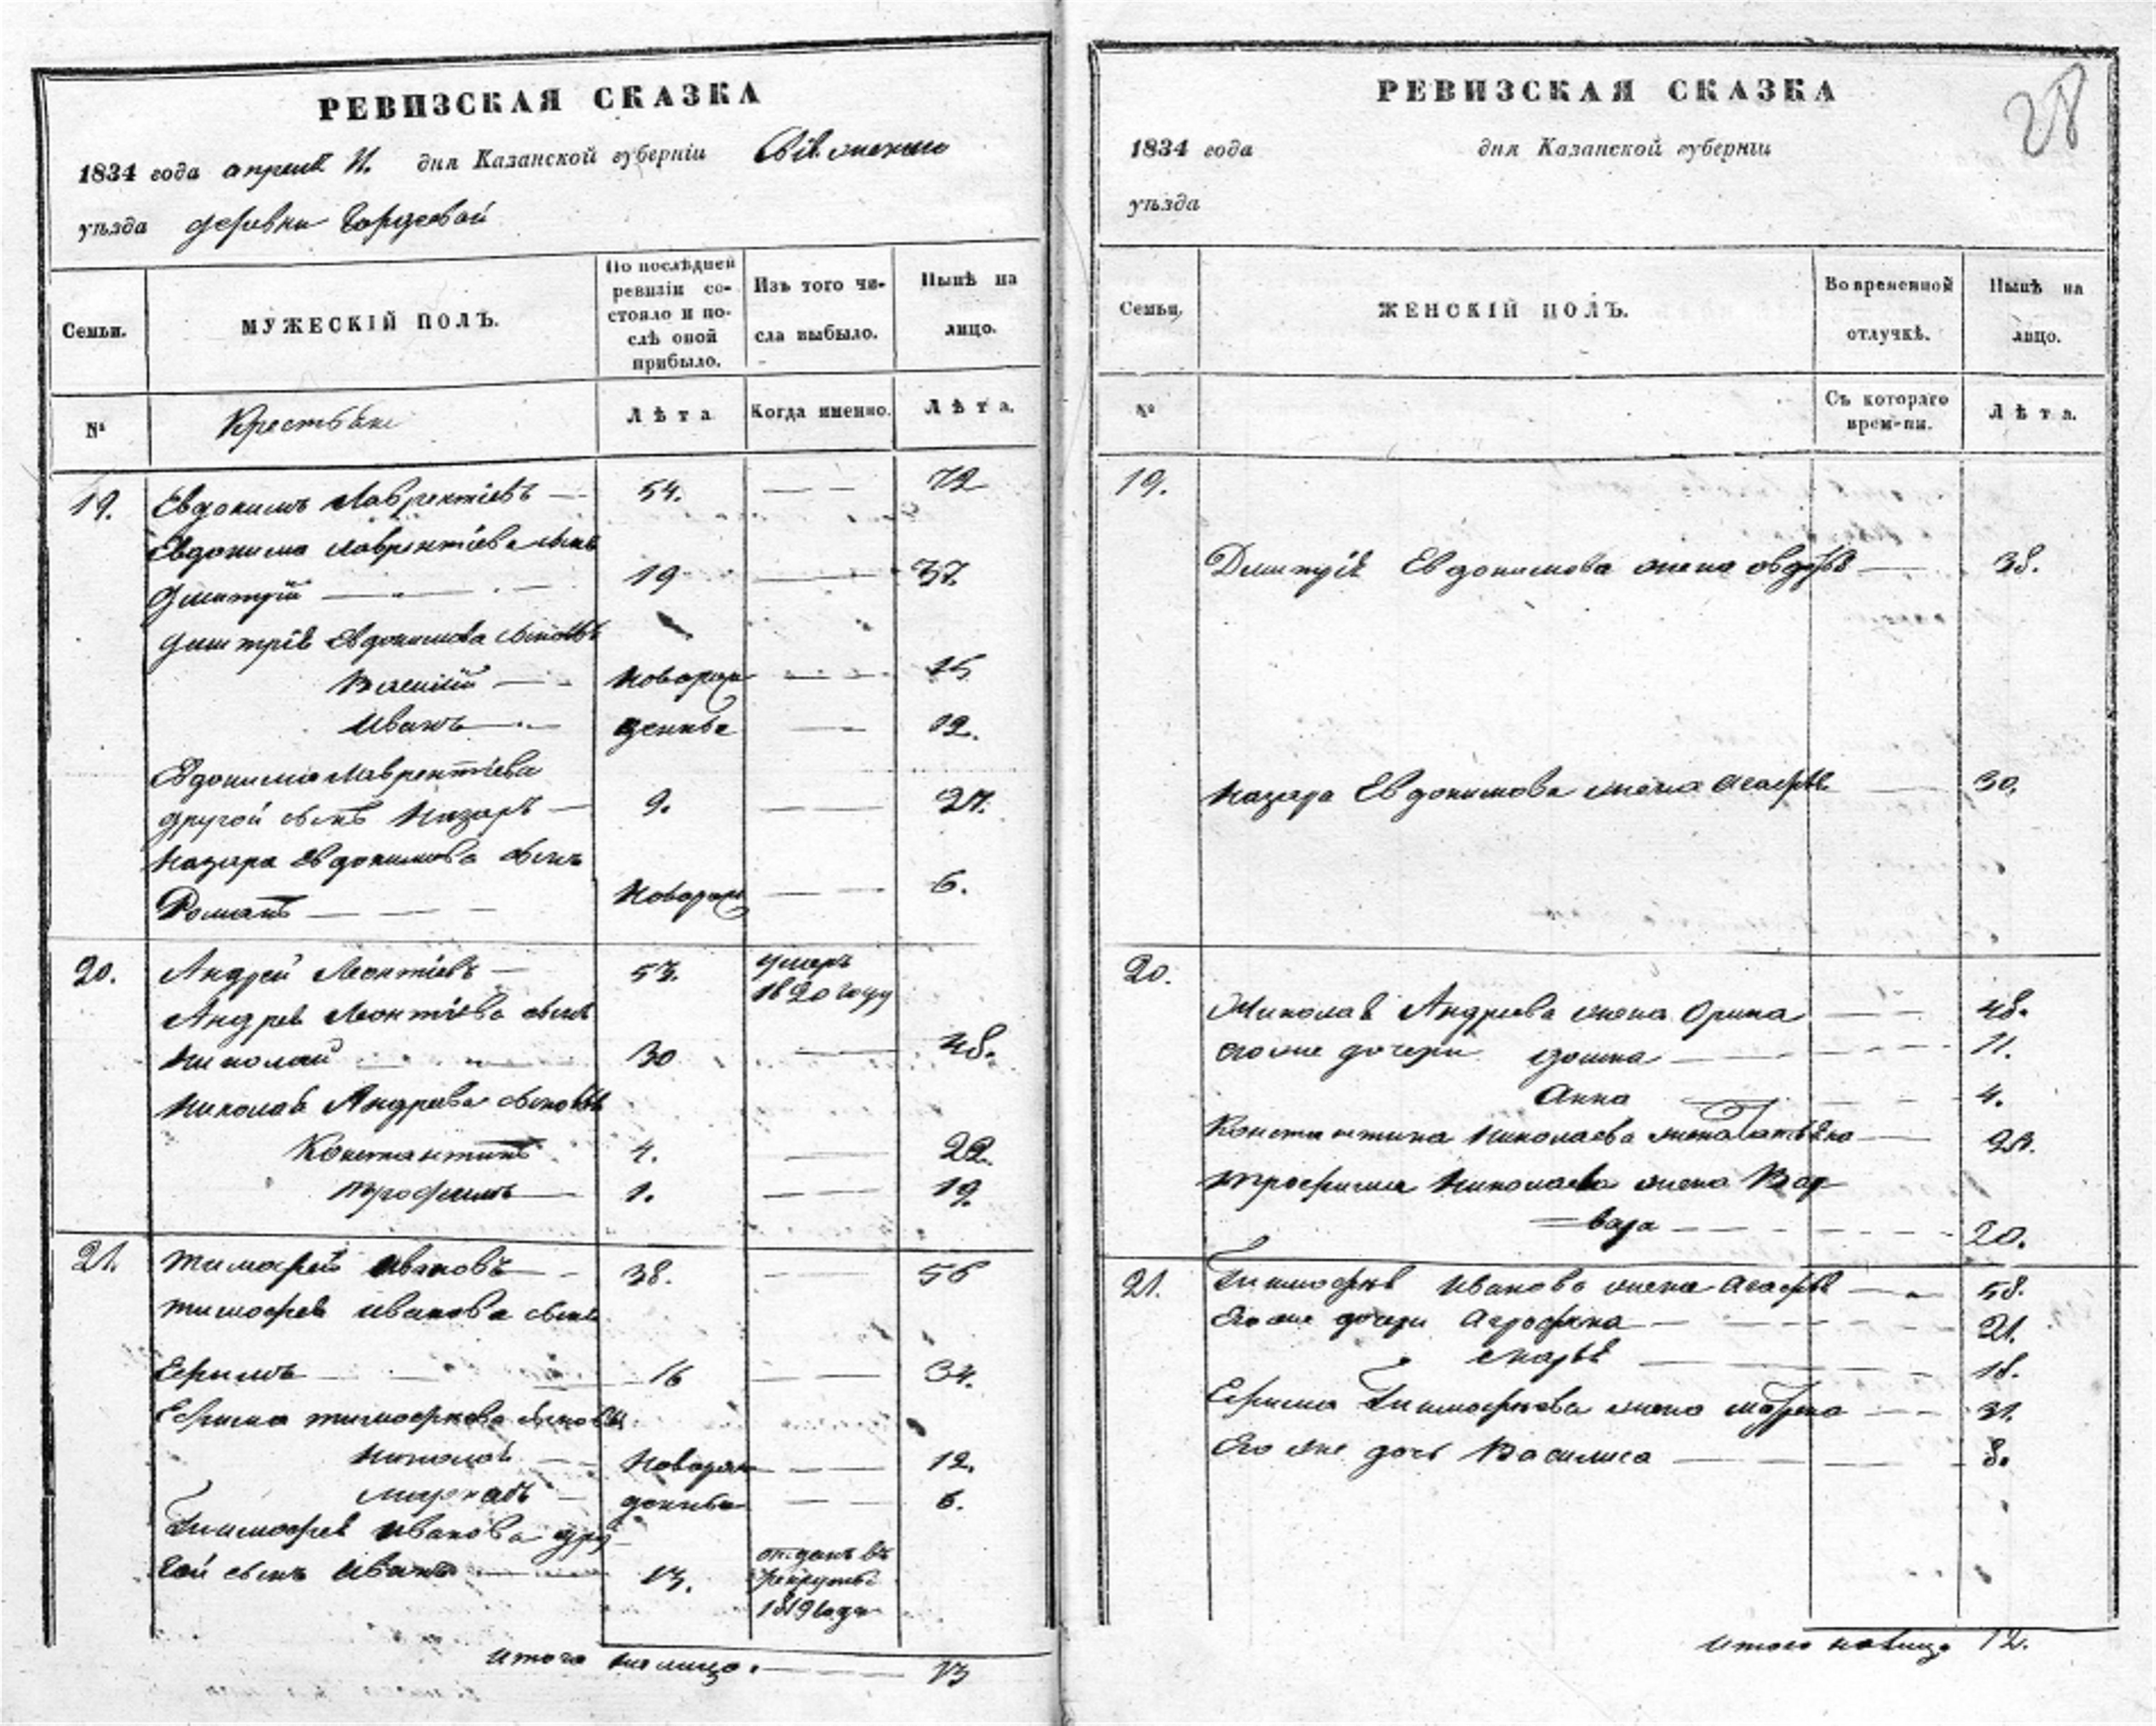 РЕВИЗСКАЯ СКАЗКА
1834 года апреля дня Казанской губерніи
уѣзда деревни
Семьи.
МУЖЕСКІЙ ПОЛЪ.
По послѣдней
ревизіи со-
стояло и по-
слѣ оной
прибыло.
Изъ того чи-
сла выбыло.
Нынѣ на
лицо.
№
Крестьяне
Лѣта
Когда именно.
Лѣта.
19. Евдокимъ Лаврентіевъ — 54. — — 72
Евдокима Лаврентіева сынъ
Дмитрій — 19 — 37.
Дмитрія Евдокимова сыновья
Василій — новорож — 15
Иванъ — денные — 12.
Евдокима Лаврентіева
другой сынъ Назаръ — 9. — — 27.
Назара Евдокимова сынъ
Романъ — — — новорож — — 6.
20. Андрей Леонтіевъ — 53. умеръ
1820 году
Андрея Леонтіева сынъ
Николай 30 — 48.
Николая Андреева сыновья
Константинъ 4. — 22.
Трофимъ — 1. — — 19.
21. Тимофей Ивановъ — 38. — — 56
Тимофея Иванова сынъ
Ефимъ 16 — — 34.
Ефима Тимофеева сыновья
Николай — новорож — — 12.
денные — — 6.
Тимофея Иванова дру
гой сынъ Иванъ — 13. отданъ въ
рекруты
1819 года
Итого на лицо. — 13
РЕВИЗСКАЯ СКАЗКА
28
1834 года дня Казанской губерніи
уѣзда
Семьи.
ЖЕНСКІЙ ПОЛЪ.
Во временной
отлучкѣ.
Нынѣ на
лицо.
№
Съ котораго
врем-ни.
Лѣта.
19.
Дмитрія Евдокимова жена Авдотья — 38.
Назара Евдокимова жена Агафья — 30.
20.
Николая Андреева жена Орина — — 48.
его же дочери — 11.
Анна — — — 4.
Константина Николаева жена Татьяна — 23.
Трофима Николаева жена Вар
= вара — — — 20.
21. Тимофея Иванова жена Агафья — 58.
Его же дочери Агрофена — — — 21.
Марья — — 18.
Ефима Тимофеева жена Марфа — — 31.
Его же дочь Василиса — — — 8.
Итого на лицо 12.